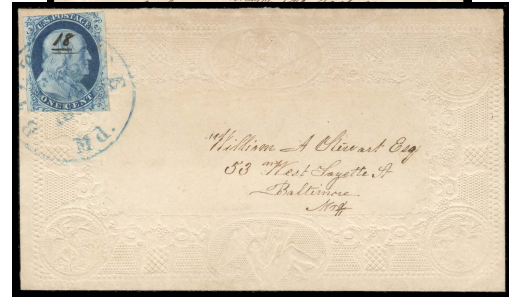 U.S. POSTAGE
18
ONE CENT
Md.
William A Stewart Esq
53 West Fayette St
Baltimore